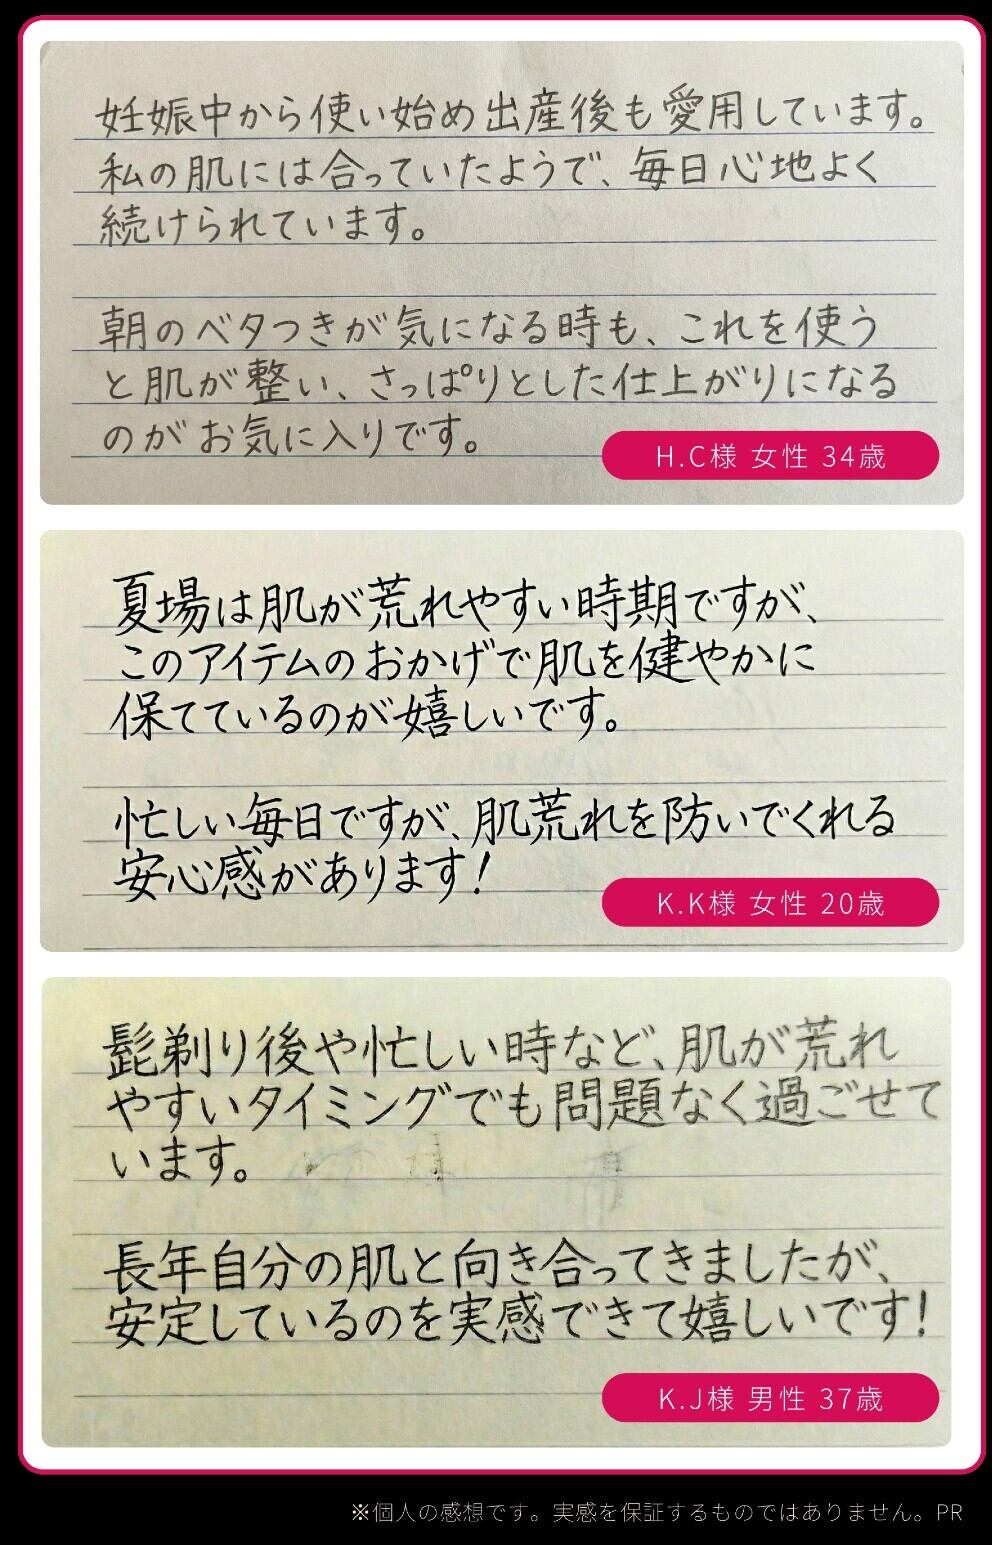 妊娠中から使い始め出産後も愛用しています。
私の肌には合っていたようで、毎日心地よく
続けられています。
朝のベタつきが気になる時も、これを使う
と肌が整い、さっぱりとした仕上がりになる
のがお気に入りです。
H.C様 女性 34歳
夏場は肌が荒れやすい時期ですが、
このアイテムのおかげで肌を健やかに
保てているのが嬉しいです。
忙しい毎日ですが、肌荒れを防いでくれる
安心感があります！
K.K様 女性 20歳
髭剃り後や忙しい時など、肌が荒れ
やすいタイミングでも問題なく過ごせて
います。
長年自分の肌と向き合ってきましたが、
安定しているのを実感できて嬉しいです！
K.J様 男性 37歳
※個人の感想です。実感を保証するものではありません。PR